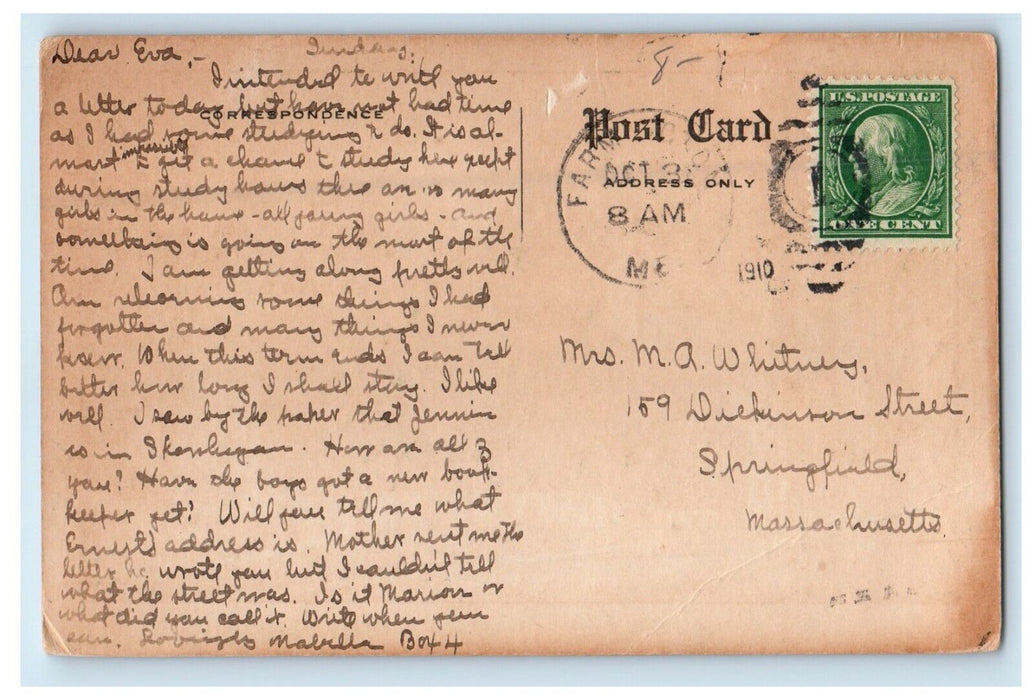 Dear Eva,- Sunday.
I intended to write you
a letter today but have not had time
CORRESPONDENCE
as I had some studying to do. It is al-
most impossible to get a chance to study here except
during study hours there are so many
girls in the house - all young girls - and
something is going on the most of the
time. I am getting along pretty well.
Am relearning some things I had
forgotten and many things I never
knew. When this term ends I can tell
better how long I shall stay. I like
well. I saw by the paper that Jennie
is in Skowhegan. How are all of
you? Have the boys got a new book-
keeper yet? Will you tell me what
Ernest's address is. Mother sent me the
letter he wrote you but I couldn't tell
what the street was. Is it Marion or
what did you call it. Write when you
can. Lovingly Mabelle Box 4
8-1
Post Card
ADDRESS ONLY
FARM
OCT 3
8 AM
ME
1910
1
U.S. POSTAGE
ONE CENT
Mrs. M. A. Whitney,
159 Dickinson Street,
Springfield,
Massachusetts